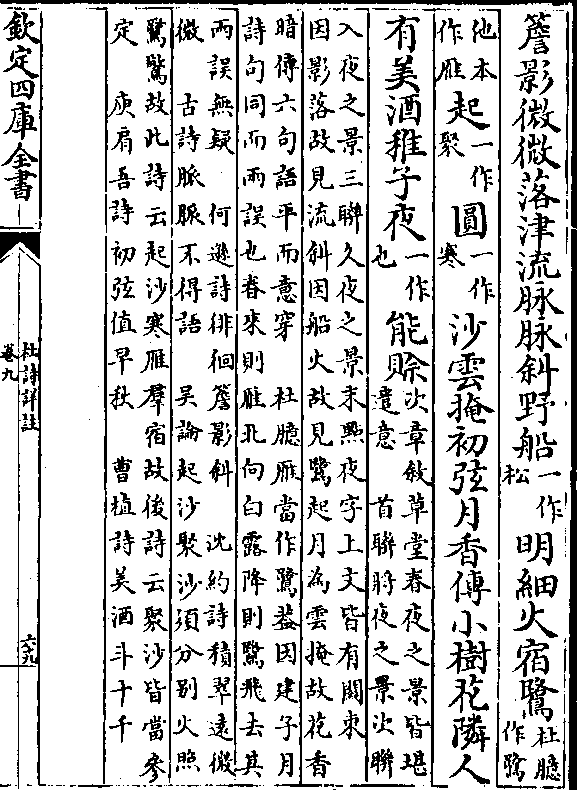 簷影微微落津流脉脉斜野船一作松明細火宿鷺杜臆作鷺
他本作雁起一作聚圓一作寒沙雲掩初弦月香傳小樹花隣人
有美酒稚子夜一作也能賖次章敘草堂春夜之景皆堪
遣意 首聯將夜之景次聯
入夜之景三聯久夜之景末㸃夜字上文皆有關束
因影落故見流斜因船火故見鷺起月為雲掩故花香
暗傳六句語平而意穿 杜臆雁當作鷺葢因建子月
詩句同而兩誤也春來則雁北向白露降則鷺飛去其
兩誤無疑 何遜詩徘徊簷影斜 沈約詩積翠遠微
微 古詩脈脈不得語 吳論起沙聚沙須分别火照
鷺驚故此詩云起沙寒雁羣宿故後詩云聚沙皆當參
定 庾肩吾詩初弦值早秋 曹植詩美酒斗十千
欽定四庫全書
杜詩詳註
卷九
六九